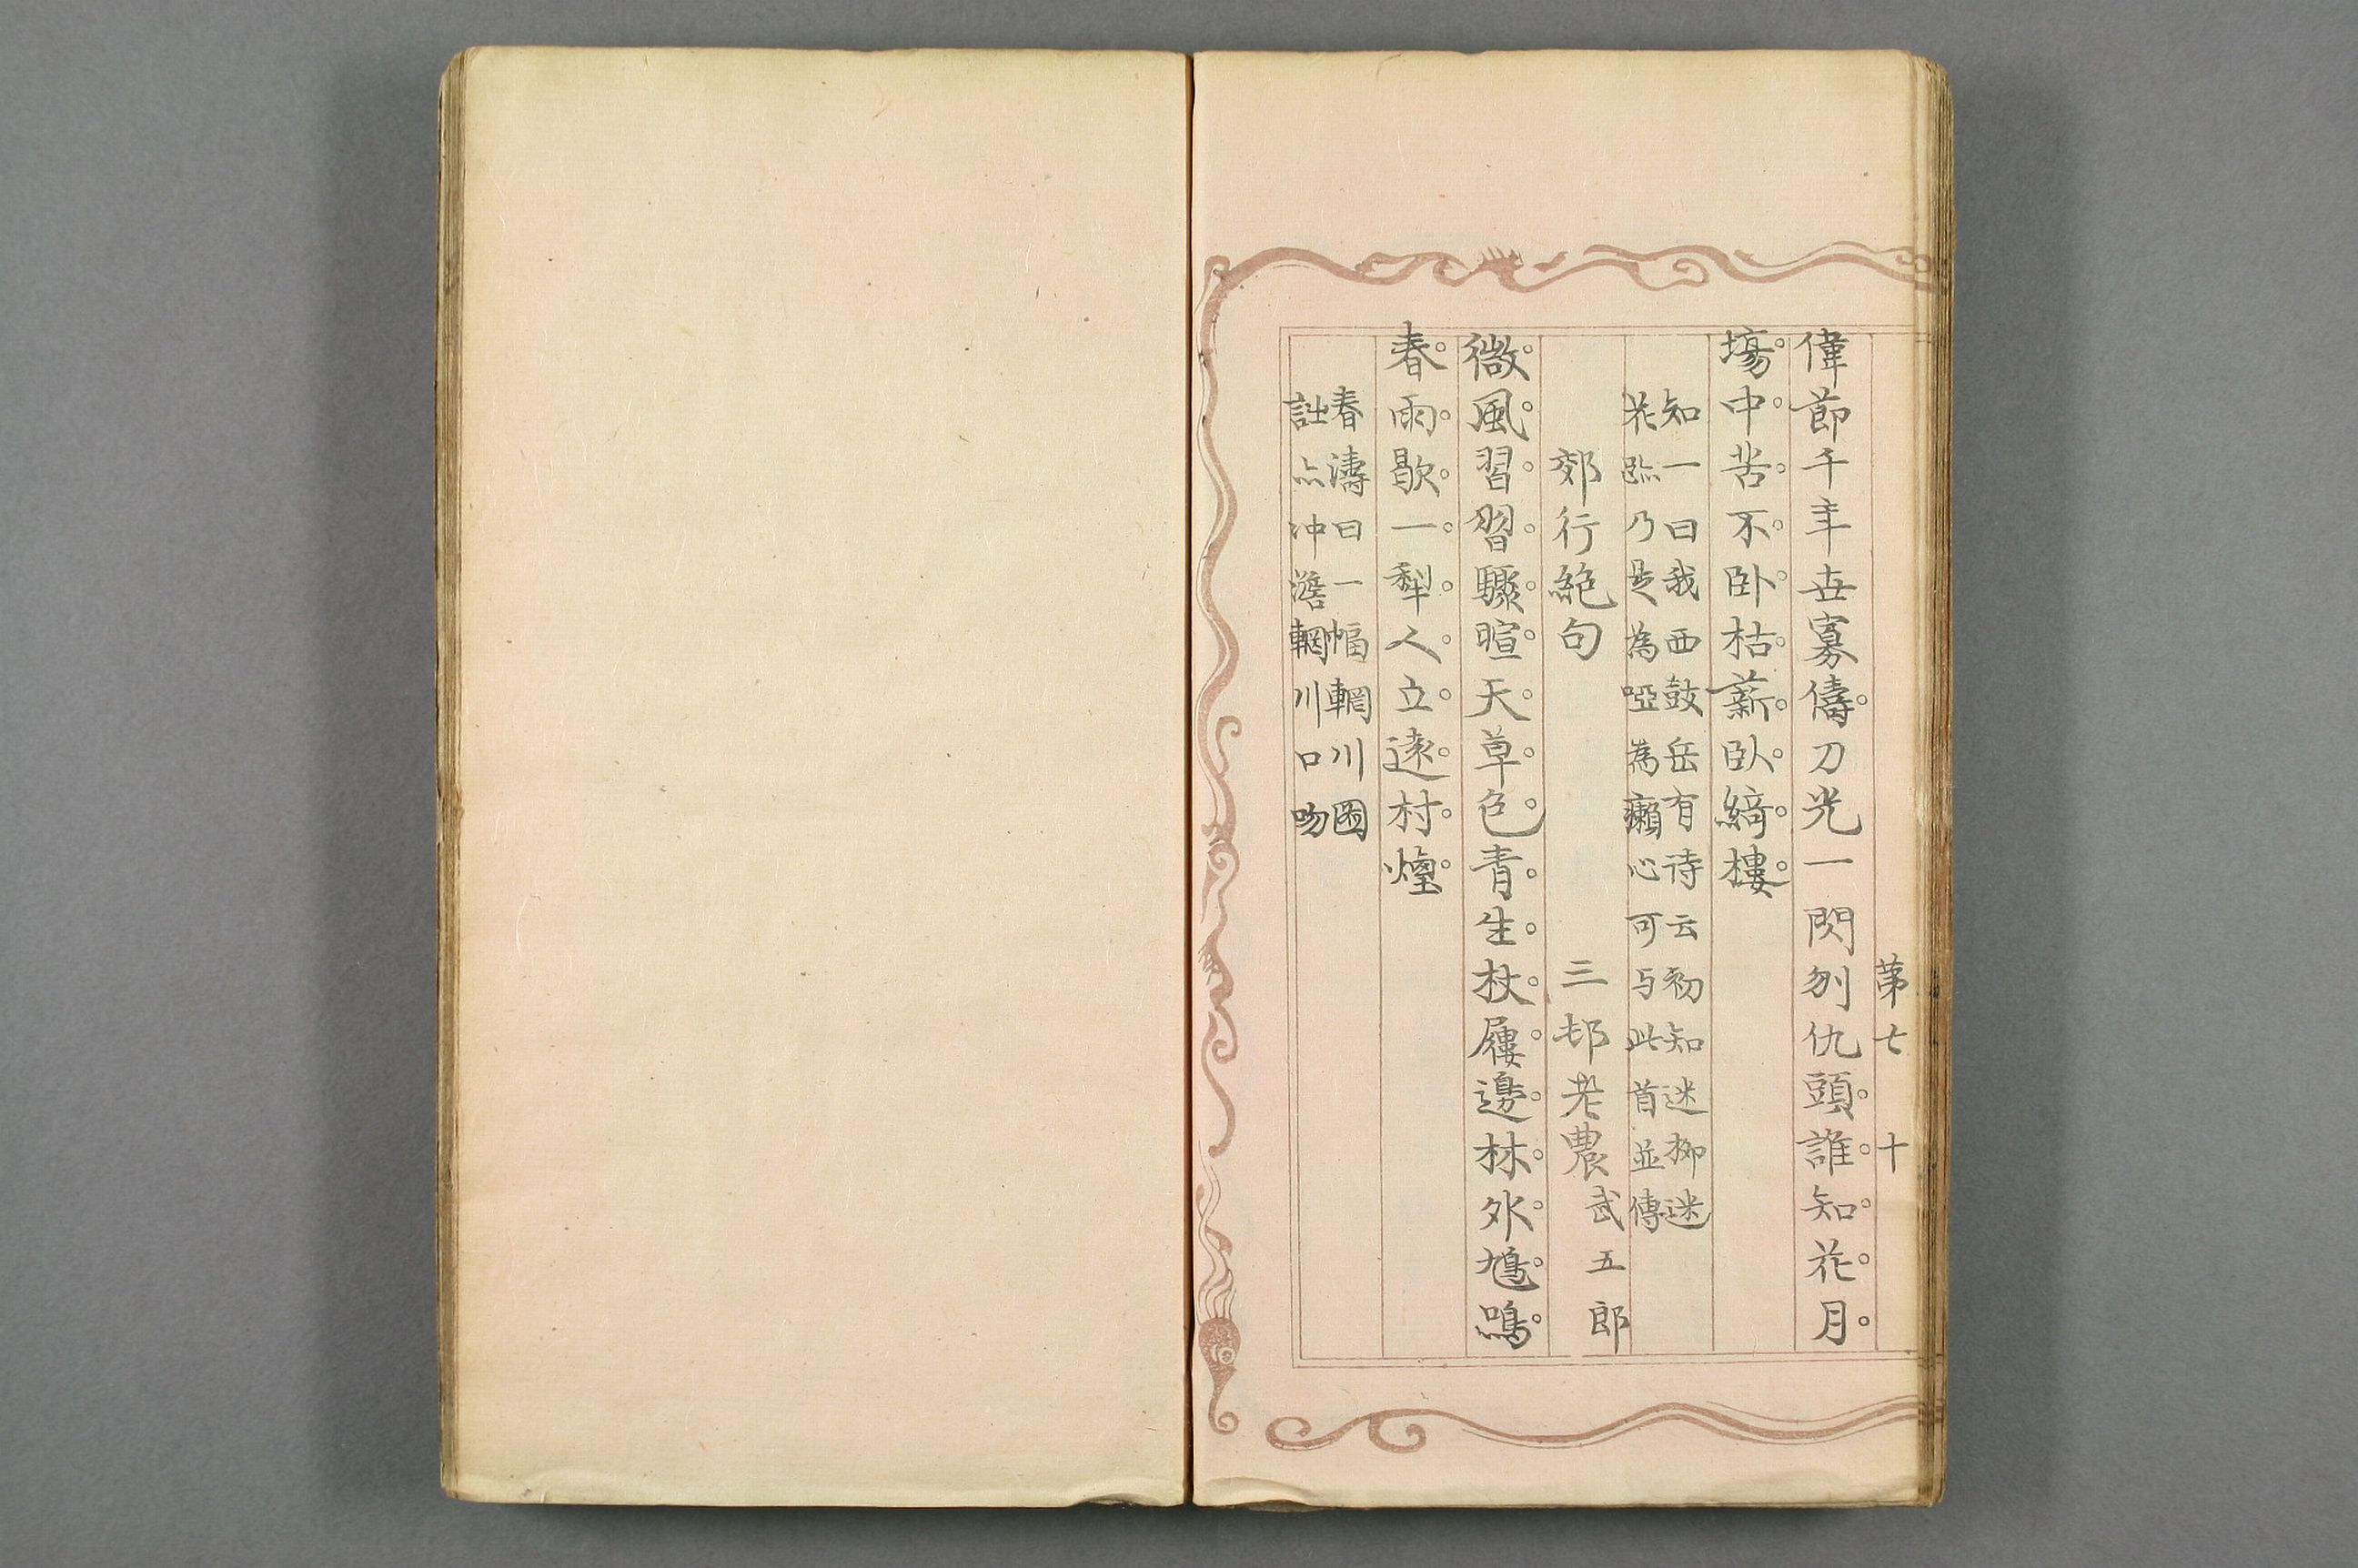 第七 十
偉節千年世寡儔刀光一閃刎仇頭誰知花月
塲中苦不卧枯薪臥綺樓
知一曰我西鼓岳有诗云初知迷柳迷
花㸃乃是為啞為癩心可与此首並傳
郊行絶句 三邨老農武五郎
微風習習驟暄天草色青生杖屨邊林外鳩鳴
春雨歇一犁人立遠村煙
春濤曰一幅輞川圖
詘㸃冲澹輞川口吻